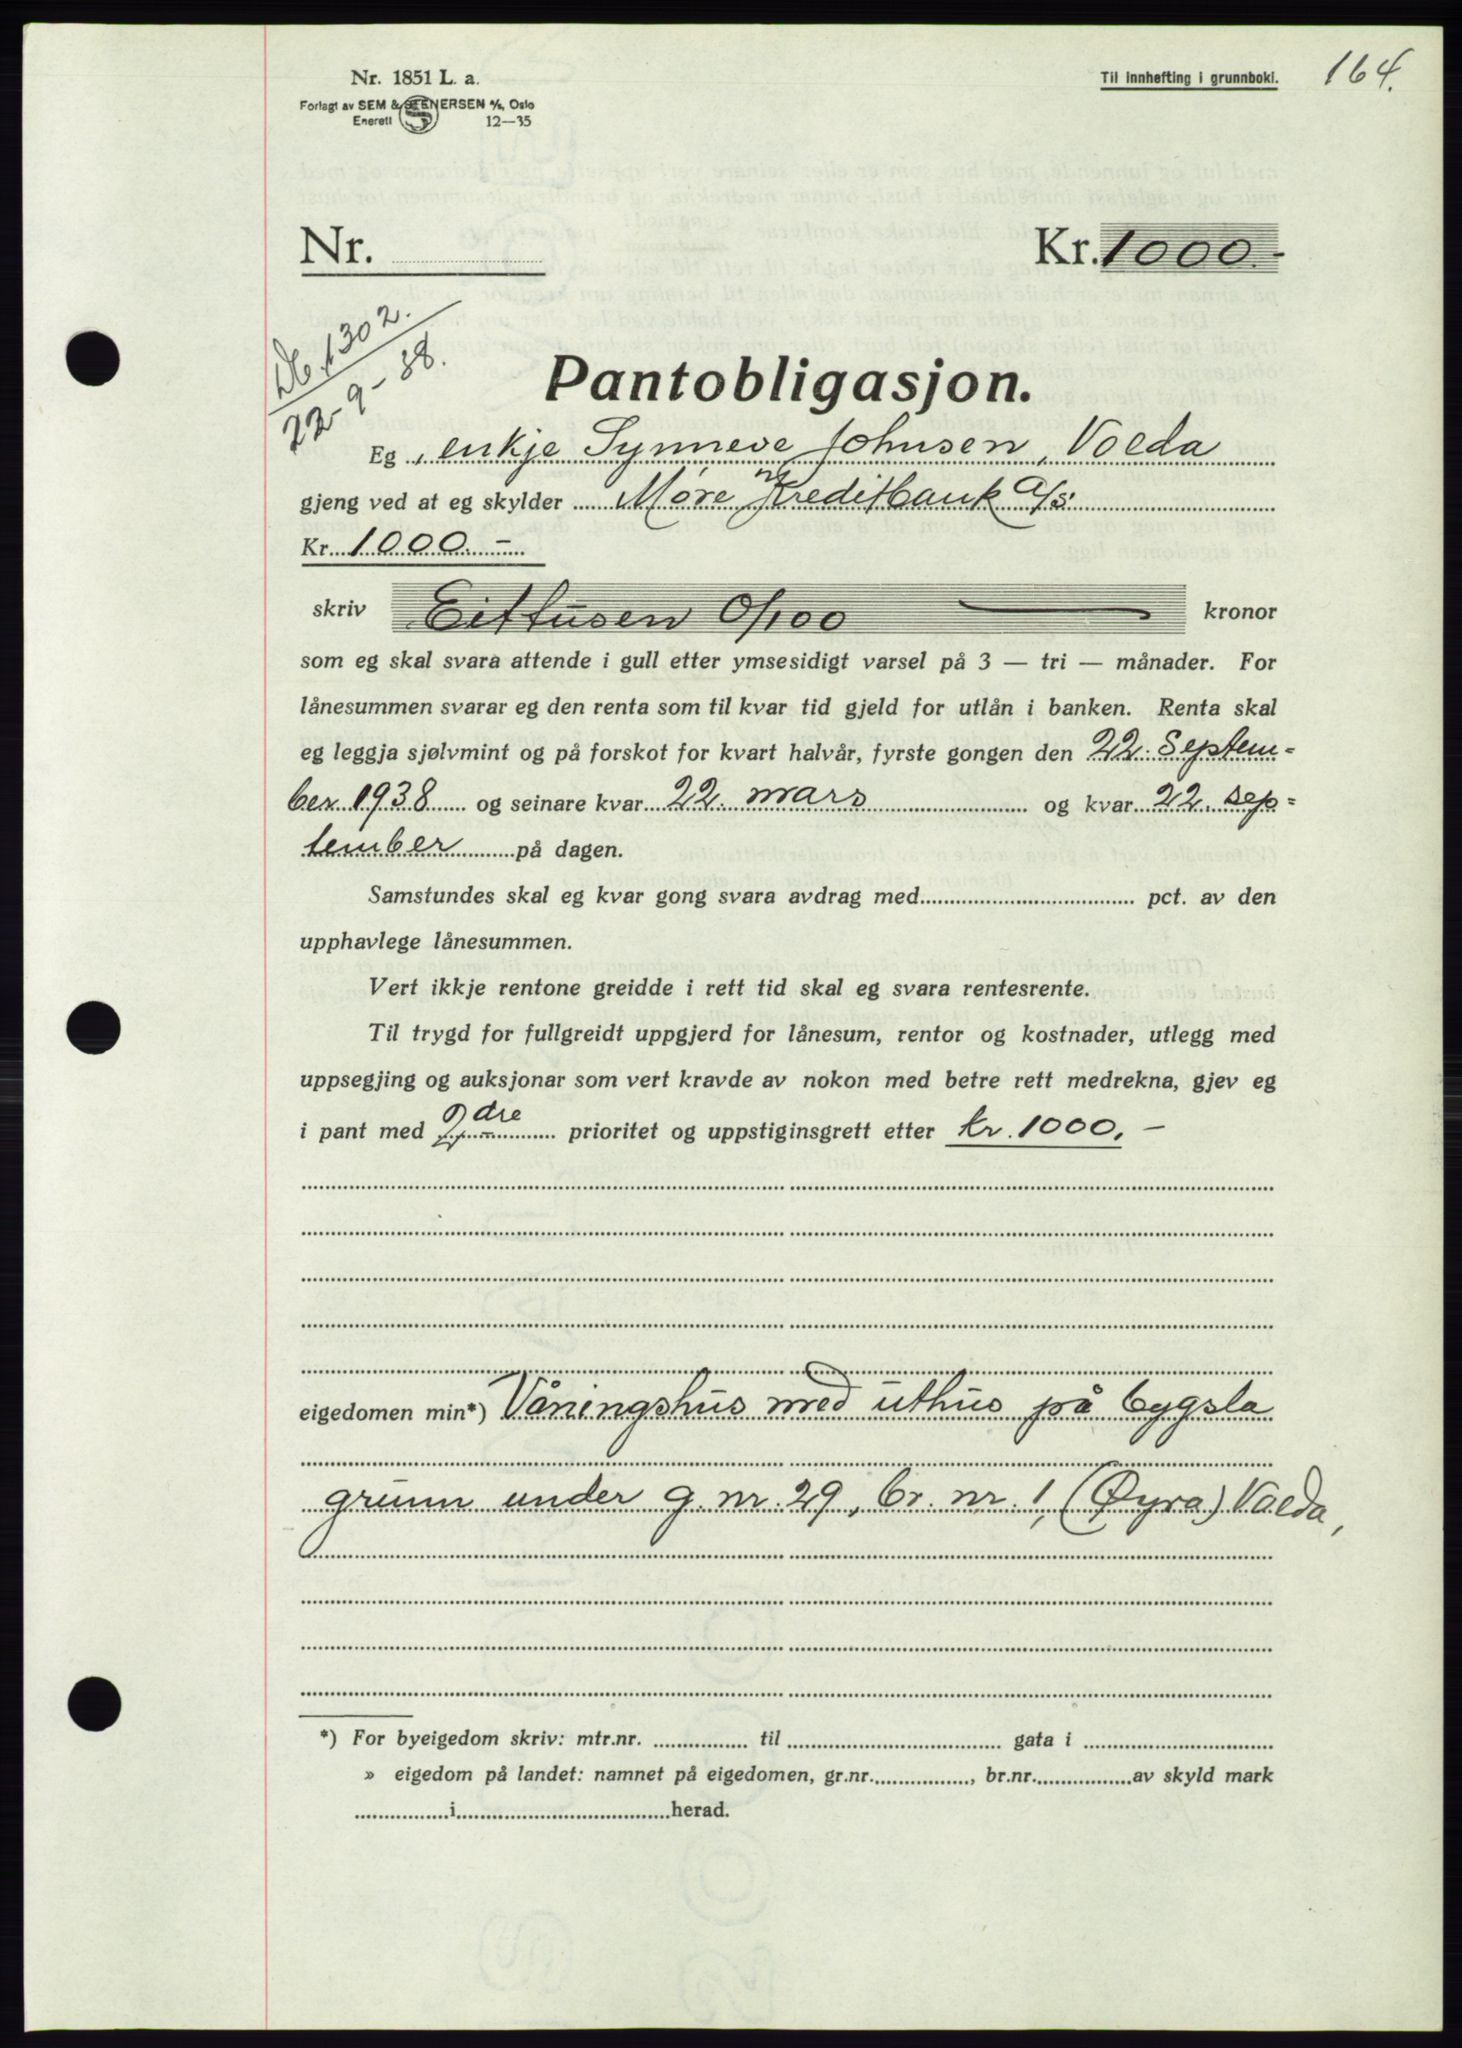 164.
Til innhefting i grunnboki.
Nr. 1851 L. a.
Forlagt av SEM & STENERSEN A/S, Oslo
Enerett 12—35
Nr.
Kr. 1000.-
Db. 1302.
22-9-38.
Pantobligasjon.
Eg, enkje Synneve Johnsen, Volda
gjeng ved at eg skylder Møre Kreditbank A/S.
Kr. 1000.-
skriv Eittusen 0/100 kronor
som eg skal svara attende i gull etter ymsesidigt varsel på 3 — tri — månader. For
lånesummen svarar eg den renta som til kvar tid gjeld for utlån i banken. Renta skal
eg leggja sjølvmint og på forskot for kvart halvår, fyrste gongen den 22. Septem-
ber 1938 og seinare kvar 22. mars og kvar 22. sep-
tember på dagen.
Samstundes skal eg kvar gong svara avdrag med pct. av den
upphavlege lånesummen.
Vert ikkje rentone greidde i rett tid skal eg svara rentesrente.
Til trygd for fullgreidt uppgjerd for lånesum, rentor og kostnader, utlegg med
uppsegjing og auksjonar som vert kravde av nokon med betre rett medrekna, gjev eg
i pant med 2dre prioritet og uppstiginsgrett etter kr. 1000.-
eigedomen min*) Våningshus med uthus på bygsla
grunn under g. nr. 29, br. nr. 1, (Øyra) Volda,
*) For byeigedom skriv: mtr.nr. til gata i
» eigedom på landet: namnet på eigedomen, gr.nr. , br.nr. av skyld mark
i herad.